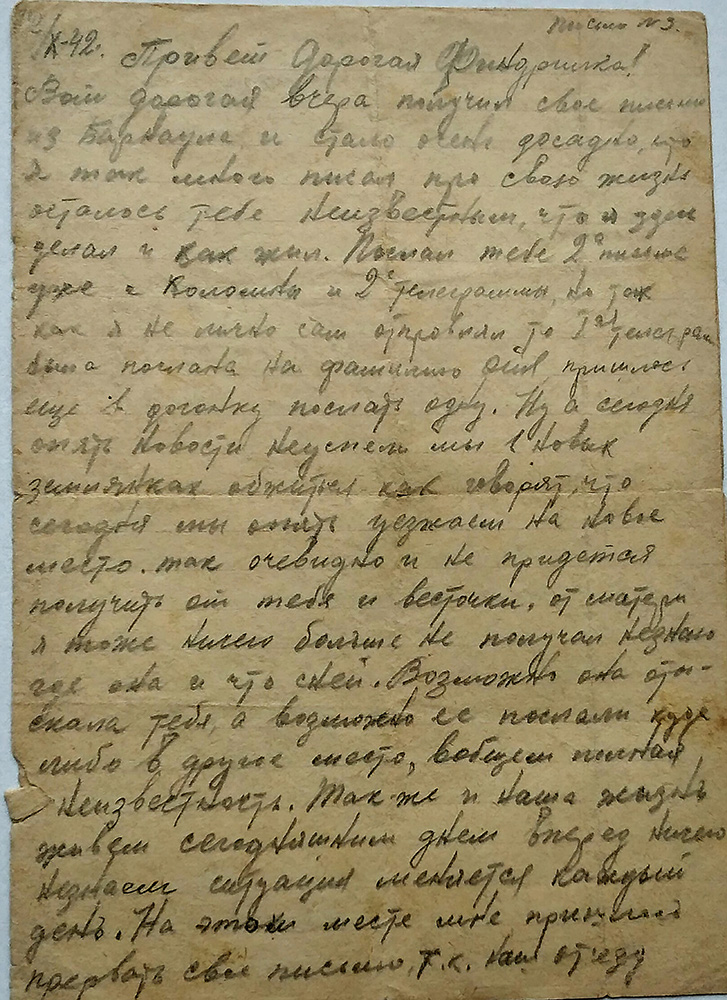 Письмо N 3.
/X-42. Привет Дорогая
Вот дорогая вчера получил свое письмо
из Барнаула и стало очень досадно, что
я так много писал про свою жизнь
осталось тебе неизвестным, что я здесь
делал и как жил. Послал тебе 2 письма
уже с Коломны и 2 телеграммы, но так
как я не лично сам отправлял то I
была послана на фамилию пришлось
еще в догонку послать одну. Ну а сегодня
опять новости неуспели мы в новых
землянках обжится как говорят, что
сегодня мы опять уезжаем на новое
место. так очевидно и не придется
получить от тебя и весточки. от матери
я тоже ничего больше не получал незнаю
где она и что сней. Возможно она оты-
скала тебя, а возможно ее послали куда
либо в другое место, вобщем полная
неизвестность. Так же и наша жизнь
живем сегодняшним днем вперед ничего
незнаем ситуация меняется каждый
день. На этом месте мне пришлось
прервать свое письмо, т.к. наш отъезд